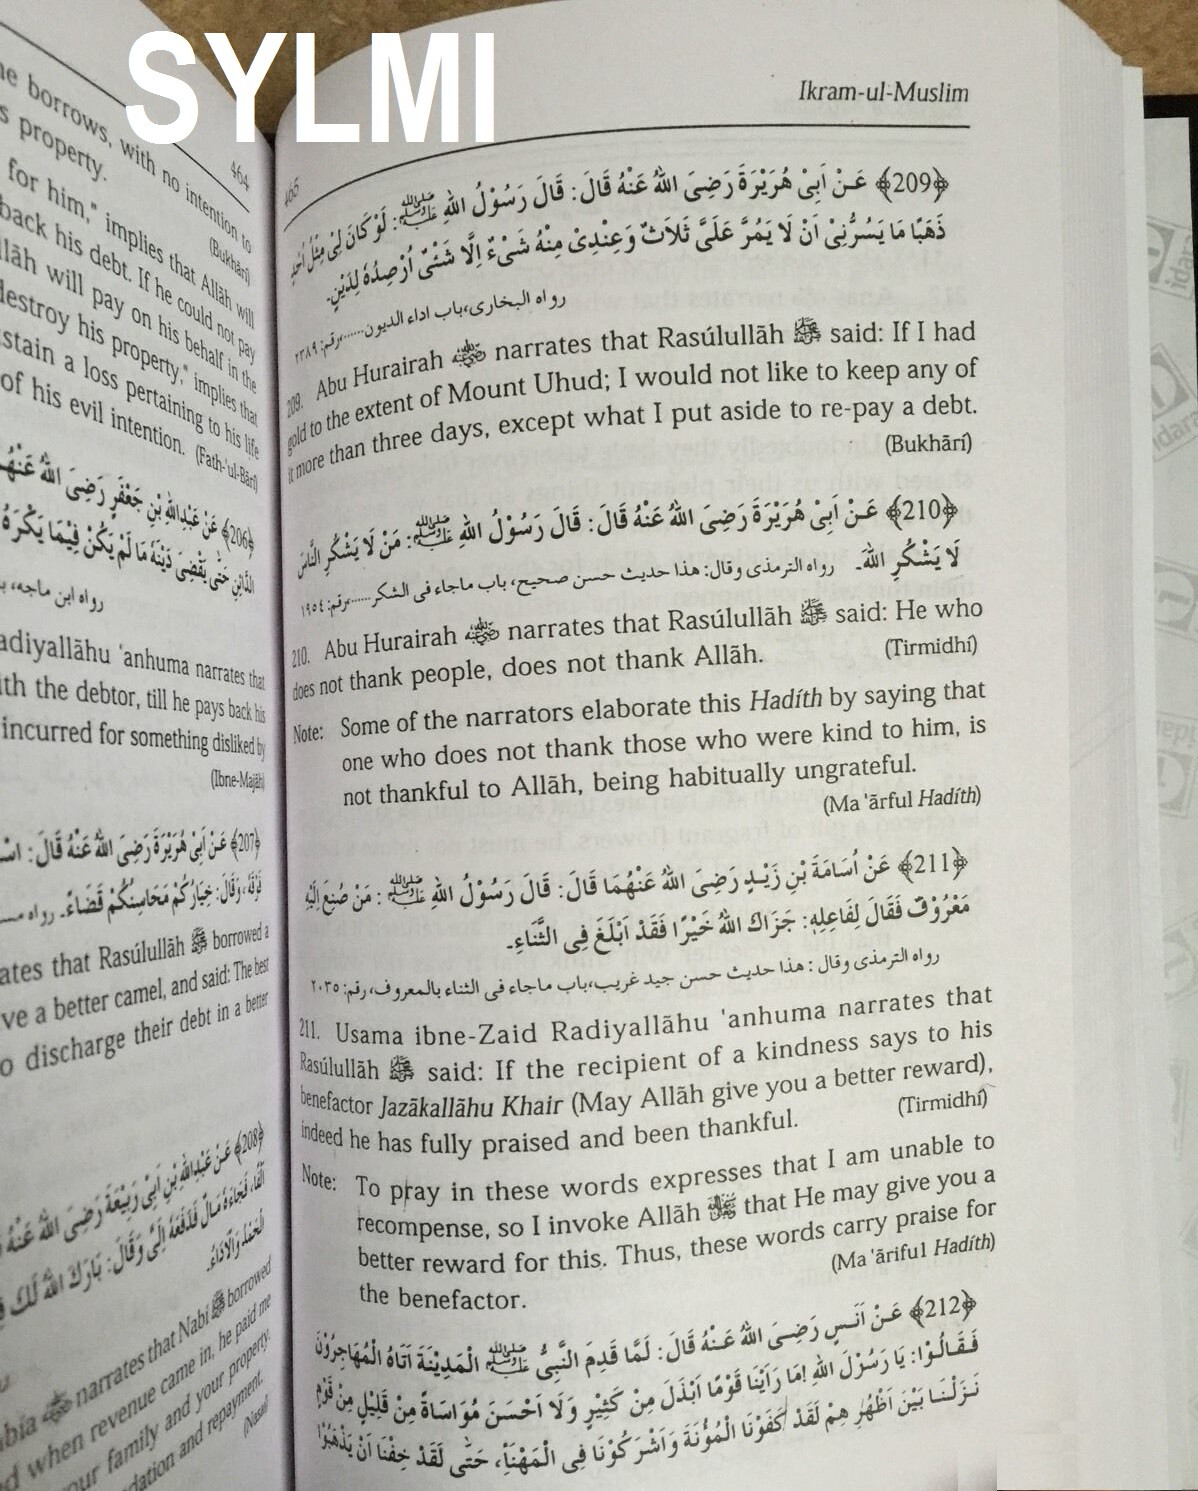 SYLMI
464
he borrows, with no intention to
s property.
(Bukhārí)
for him," implies that Allāh will
back his debt. If he could not pay
Allāh will pay on his behalf in the
destroy his property," implies that
stain a loss pertaining to his life
of his evil intention. (Fath-'ul-Bārí)
﴿206﴾ عَنْ عَبْدِاللهِ بْنِ جَعْفَرٍ رَضِىَ اللهُ عَنْهُمَا
الدَّائِنِ حَتّٰى يَقْضِىَ دَيْنَهُ مَا لَمْ يَكُنْ فِيْمَا يَكْرَهُ
رواه ابن ماجه،
adiyallāhu 'anhuma narrates that
ith the debtor, till he pays back his
incurred for something disliked by
(Ibne-Majāh)
﴿207﴾ عَنْ اَبِىْ هُرَيْرَةَ رَضِىَ اللهُ عَنْهُ قَالَ:
وَقَالَ: خِيَارُكُمْ مَحَاسِنُكُمْ قَضَاءً۔ رواه
ates that Rasúlullāh ﷺ borrowed a
ve a better camel, and said: The best
o discharge their debt in a better
﴿208﴾ عَنْ عَبْدِاللهِ بْنِ اَبِىْ رَبِيْعَةَ رَضِىَ اللهُ عَنْهُ
فَجَاءَهُ مَالٌ فَدَفَعَهُ اِلَىَّ وَقَالَ: بَارَكَ اللهُ لَكَ
الْحَمْدُ وَالْاَدَاءُ۔
narrates that Nabí ﷺ borrowed
d when revenue came in, he paid me
our family and your property.
dation and repayment.
(Nasaí)
465
Ikram-ul-Muslim
﴿209﴾ عَنْ اَبِىْ هُرَيْرَةَ رَضِىَ اللهُ عَنْهُ قَالَ: قَالَ رَسُوْلُ اللهِ ﷺ: لَوْ كَانَ لِىْ مِثْلُ اُحُدٍ
ذَهَبًا مَا يَسُرُّنِىْ اَنْ لَا يَمُرَّ عَلَىَّ ثَلَاثٌ وَعِنْدِىْ مِنْهُ شَىْءٌ اِلَّا شَىْءٌ اُرْصِدُهُ لِدَيْنٍ۔
رواه البخارى،باب اداء الديون......،رقم: ٢٣٨٩
209. Abu Hurairah ؓ narrates that Rasúlullāh ﷺ said: If I had
gold to the extent of Mount Uhud; I would not like to keep any of
it more than three days, except what I put aside to re-pay a debt.
(Bukhārí)
﴿210﴾ عَنْ اَبِىْ هُرَيْرَةَ رَضِىَ اللهُ عَنْهُ قَالَ: قَالَ رَسُوْلُ اللهِ ﷺ: مَنْ لَا يَشْكُرِ النَّاسَ
لَا يَشْكُرِ اللهَ۔ رواه الترمذى وقال: هذا حديث حسن صحيح، باب ماجاء فى الشكر......،رقم: ١٩٥٤
210. Abu Hurairah ؓ narrates that Rasúlullāh ﷺ said: He who
does not thank people, does not thank Allāh. (Tirmidhí)
Note: Some of the narrators elaborate this Hadíth by saying that
one who does not thank those who were kind to him, is
not thankful to Allāh, being habitually ungrateful.
(Ma 'ārful Hadíth)
﴿211﴾ عَنْ اُسَامَةَ بْنِ زَيْدٍ رَضِىَ اللهُ عَنْهُمَا قَالَ: قَالَ رَسُوْلُ اللهِ ﷺ: مَنْ صُنِعَ اِلَيْهِ
مَعْرُوْفٌ فَقَالَ لِفَاعِلِهٖ: جَزَاكَ اللهُ خَيْرًا فَقَدْ اَبْلَغَ فِى الثَّنَاءِ۔
رواه الترمذى وقال: هذا حديث حسن جيد غريب،باب ماجاء فى الثناء بالمعروف،رقم: ٢٠٣٥
211. Usama ibne-Zaid Radiyallāhu 'anhuma narrates that
Rasúlullāh ﷺ said: If the recipient of a kindness says to his
benefactor Jazākallāhu Khair (May Allāh give you a better reward),
indeed he has fully praised and been thankful. (Tirmidhí)
Note: To pray in these words expresses that I am unable to
recompense, so I invoke Allāh ﷻ that He may give you a
better reward for this. Thus, these words carry praise for
the benefactor. (Ma 'āriful Hadíth)
﴿212﴾ عَنْ اَنَسٍ رَضِىَ اللهُ عَنْهُ قَالَ: لَمَّا قَدِمَ النَّبِىُّ ﷺ الْمَدِيْنَةَ اَتَاهُ الْمُهَاجِرُوْنَ
فَقَالُوْا: يَا رَسُوْلَ اللهِ !مَا رَاَيْنَا قَوْمًا اَبْذَلَ مِنْ كَثِيْرٍ وَلَا اَحْسَنَ مُوَاسَاةً مِنْ قَلِيْلٍ مِنْ قَوْمٍ
نَزَلْنَا بَيْنَ اَظْهُرِهِمْ لَقَدْ كَفَوْنَا الْمُؤْنَةَ وَاَشْرَكُوْنَا فِى الْمَهْنَاِ، حَتّٰى لَقَدْ خِفْنَا اَنْ يَذْهَبُوْا